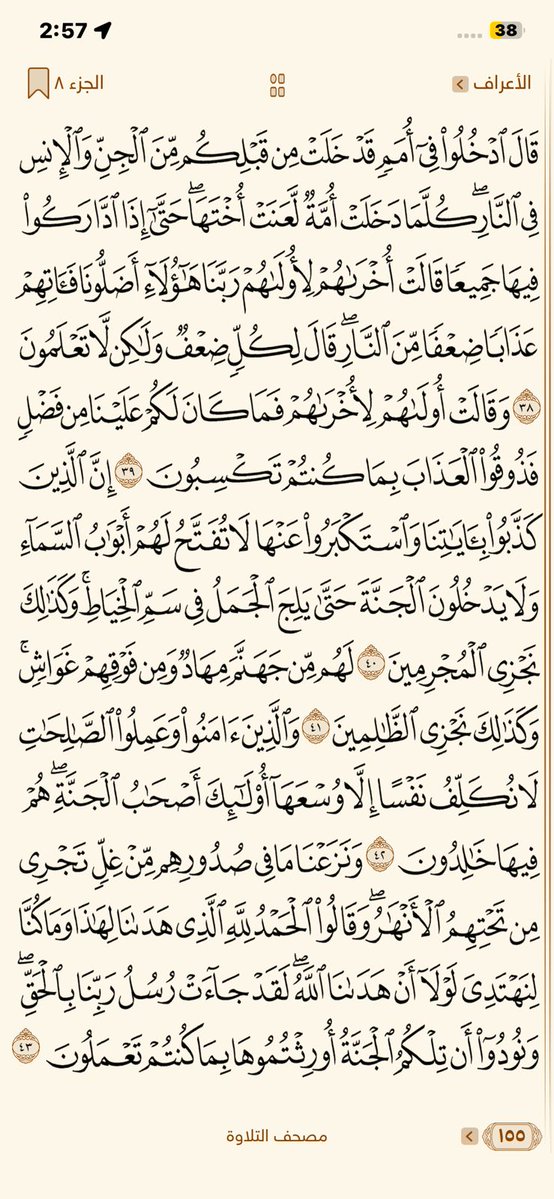 2:57
38
الأعراف
الجزء ٨
قَالَ ٱدْخُلُوا۟ فِىٓ أُمَمٍ قَدْ خَلَتْ مِن قَبْلِكُم مِّنَ ٱلْجِنِّ وَٱلْإِنسِ
فِى ٱلنَّارِ ۖ كُلَّمَا دَخَلَتْ أُمَّةٌ لَّعَنَتْ أُخْتَهَا ۖ حَتَّىٰٓ إِذَا ٱدَّارَكُوا۟
فِيهَا جَمِيعًا قَالَتْ أُخْرَىٰهُمْ لِأُولَىٰهُمْ رَبَّنَا هَٰٓؤُلَآءِ أَضَلُّونَا فَـَٔاتِهِمْ
عَذَابًا ضِعْفًا مِّنَ ٱلنَّارِ ۖ قَالَ لِكُلٍّ ضِعْفٌ وَلَٰكِن لَّا تَعْلَمُونَ
٣٨ وَقَالَتْ أُولَىٰهُمْ لِأُخْرَىٰهُمْ فَمَا كَانَ لَكُمْ عَلَيْنَا مِن فَضْلٍ
فَذُوقُوا۟ ٱلْعَذَابَ بِمَا كُنتُمْ تَكْسِبُونَ ٣٩ إِنَّ ٱلَّذِينَ
كَذَّبُوا۟ بِـَٔايَٰتِنَا وَٱسْتَكْبَرُوا۟ عَنْهَا لَا تُفَتَّحُ لَهُمْ أَبْوَٰبُ ٱلسَّمَآءِ
وَلَا يَدْخُلُونَ ٱلْجَنَّةَ حَتَّىٰ يَلِجَ ٱلْجَمَلُ فِى سَمِّ ٱلْخِيَاطِ ۚ وَكَذَٰلِكَ
نَجْزِى ٱلْمُجْرِمِينَ ٤٠ لَهُم مِّن جَهَنَّمَ مِهَادٌ وَمِن فَوْقِهِمْ غَوَاشٍ ۚ
وَكَذَٰلِكَ نَجْزِى ٱلظَّٰلِمِينَ ٤١ وَٱلَّذِينَ ءَامَنُوا۟ وَعَمِلُوا۟ ٱلصَّٰلِحَٰتِ
لَا نُكَلِّفُ نَفْسًا إِلَّا وُسْعَهَآ أُو۟لَٰٓئِكَ أَصْحَٰبُ ٱلْجَنَّةِ ۖ هُمْ
فِيهَا خَٰلِدُونَ ٤٢ وَنَزَعْنَا مَا فِى صُدُورِهِم مِّنْ غِلٍّ تَجْرِى
مِن تَحْتِهِمُ ٱلْأَنْهَٰرُ ۖ وَقَالُوا۟ ٱلْحَمْدُ لِلَّهِ ٱلَّذِى هَدَىٰنَا لِهَٰذَا وَمَا كُنَّا
لِنَهْتَدِىَ لَوْلَآ أَنْ هَدَىٰنَا ٱللَّهُ ۖ لَقَدْ جَآءَتْ رُسُلُ رَبِّنَا بِٱلْحَقِّ ۖ
وَنُودُوٓا۟ أَن تِلْكُمُ ٱلْجَنَّةُ أُورِثْتُمُوهَا بِمَا كُنتُمْ تَعْمَلُونَ ٤٣
١٥٥
مصحف التلاوة